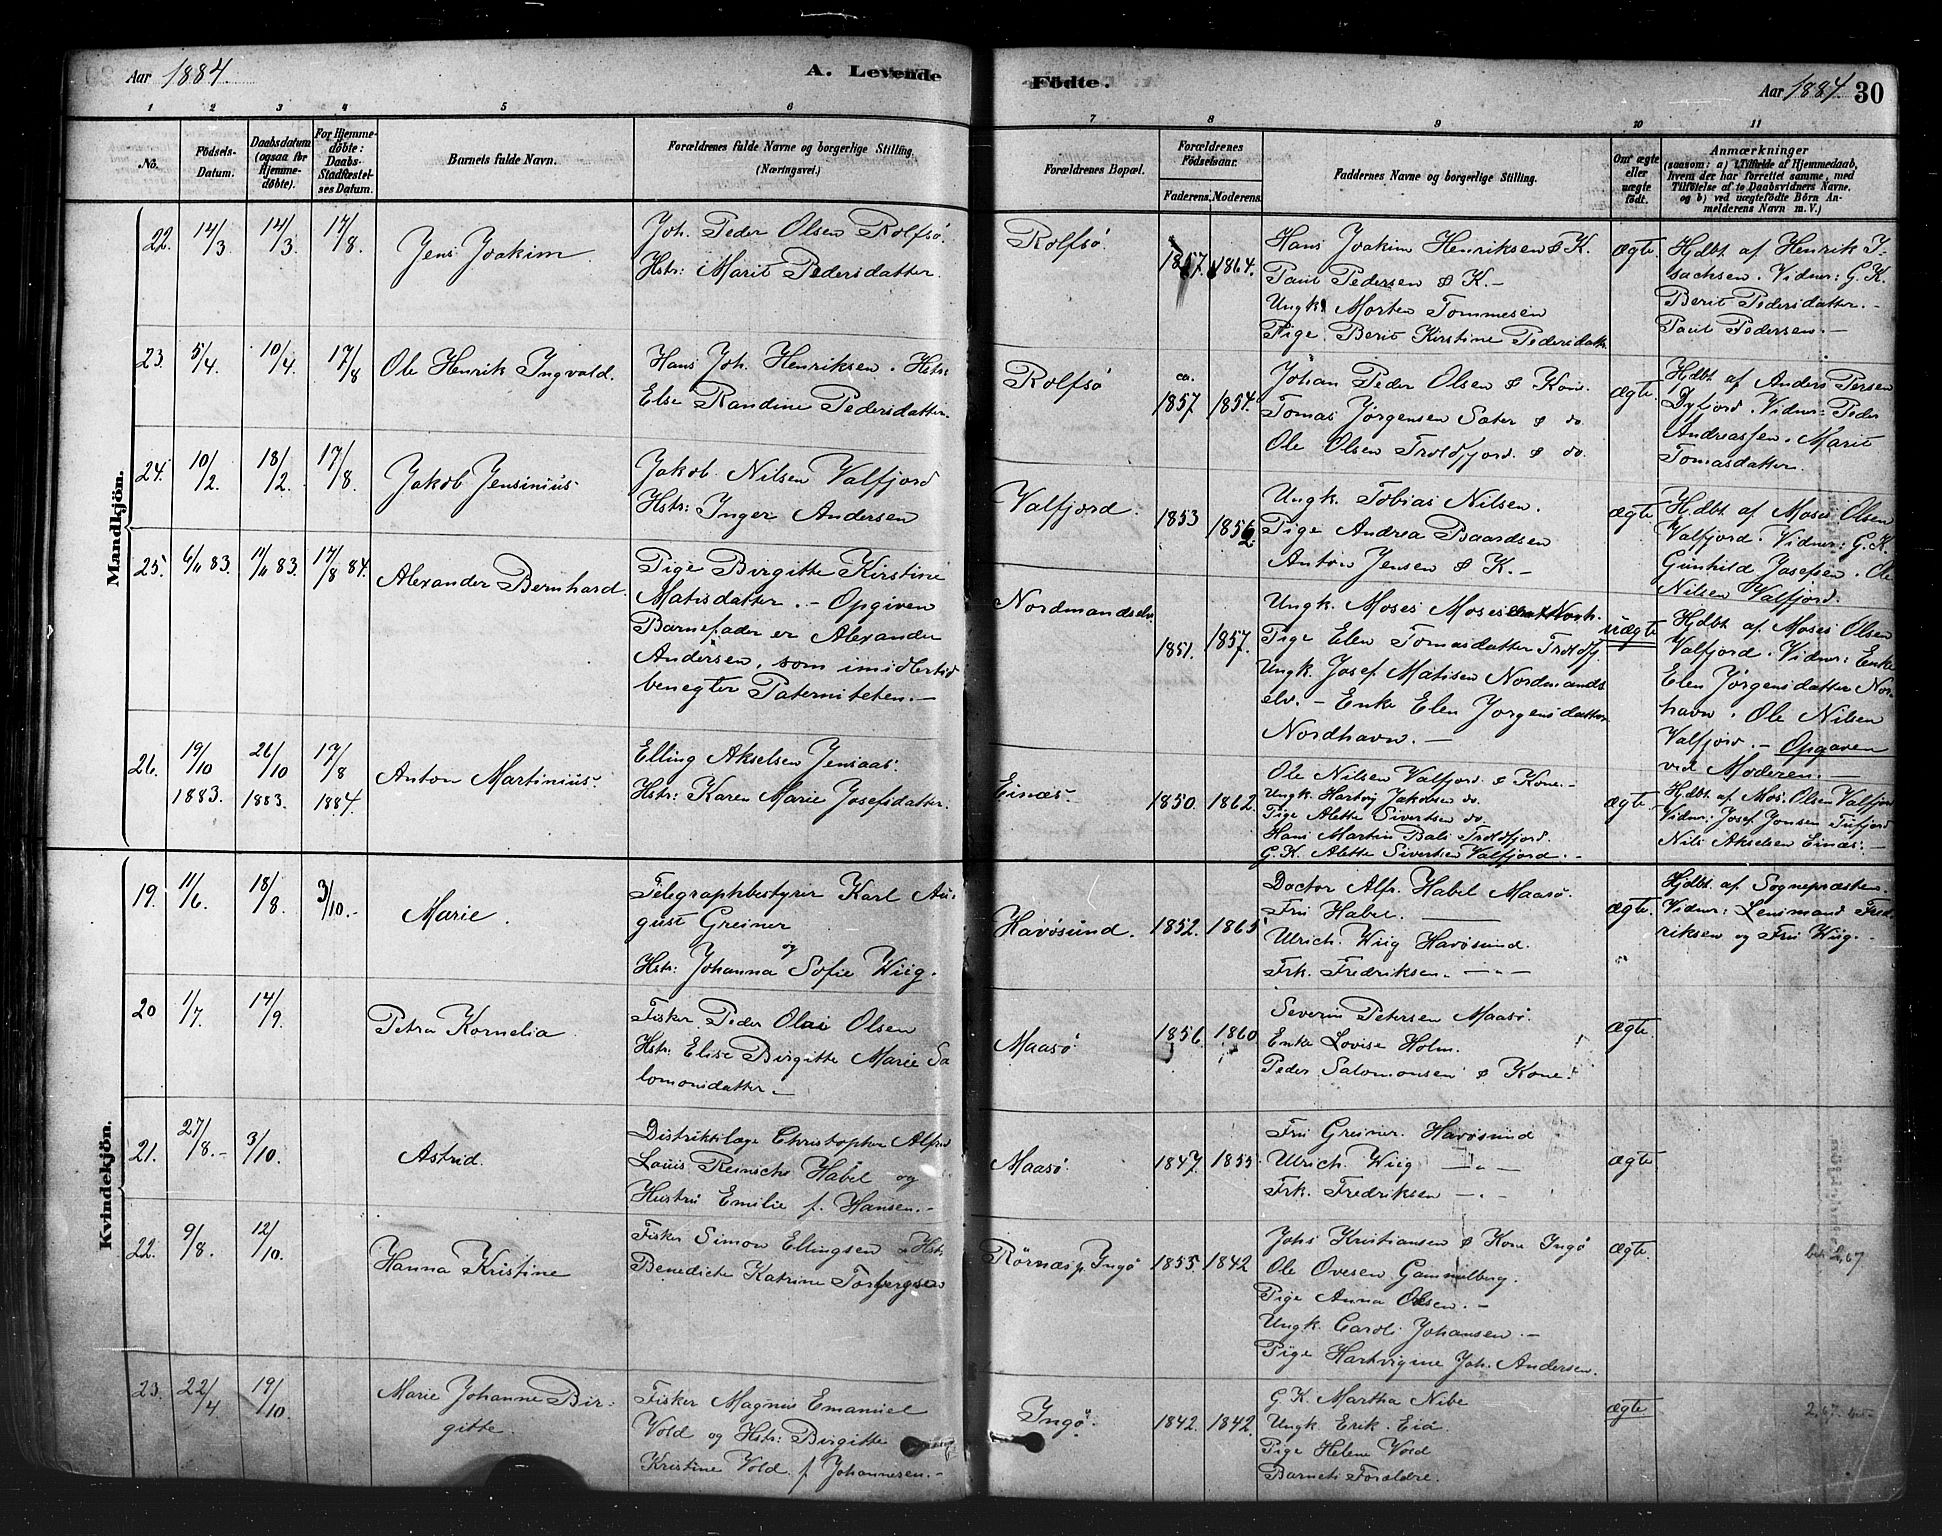 Aar 1884.
A. Levende
Födte.
Aar 1884. 30
1 2 3 4 5 6
7 8 9 10 11
No.
Födsels-Datum.
Daabsdatum (ogsaa for Hjemme-döbte).
For Hjemme-döbte: Daabs-Stadfæstelses Datum.
Barnets fulde Navn.
Forældrenes fulde Navne og borgerlige Stilling. (Næringsvei.)
Forældrenes Bopæl.
Forældrenes Födselsaar.
Faderens. Moderens.
Faddernes Navne og borgerlige Stilling.
Om ægte eller uægte födt.
Anmærkninger
(saasom: a) i Tilfælde af Hjemmedaab,
hvem der har forrettet samme, med
Tilföielse af to Daabsvidners Navne.
og b) ved uægtefödte Börn An-
melderens Navn m. V.)
Mandkjön.
22. 14/3 14/3 17/8. Jens Joakim.
Joh. Peder Olsen Rolfsö.
Hstr: Marit Pedersdatter.
Rolfsö. 1857. 1864.
Hans Joakim Henriksen & K.
Paul Pedersen & K.-
Ungk. Morten Tommesen
Pige Berit Kirstine Pedersdatter
ægte.
Hjdbt af Henrik I-
sachsen. Vidner: G. K.
Berit Pedersdatter.-
Paul Pedersen.-
23. 5/4. 10/4. 17/8 Ole Henrik Ingvald.
Hans Joh. Henriksen. Hstr:
Else Randine Pedersdatter.
Rolfsö ca. 1857 1854.
Johan Peder Olsen & Kone.
Tomas Jörgensen Sæter & do
Ole Olsen Troldfjord & do.
ægte.
Hjdbt af Anders Persen
Dyfjord. Vidner: Peder
Andreassen. Marit
Tomasdatter.
24. 10/2. 18/2. 17/8. Jakob Jensinius.
Jakob Nilsen Valfjord
Hstr: Inger Andersen
Valfjord. 1853 1852.
Ungk. Tobias Nilsen.
Pige Andrea Baardsen
Anton Jensen & K.-
ægte
Hjdbt af Moses Olsen
Valfjord. Vidner: G. K.
Gunhild Josefsen. Ole
Nilsen Valfjord.
25. 6/11 83. 11/11 83. 17/8 84. Alexander Bernhard.
Pige Birgitte Kirstine
Matisdatter.- Opgiven
Barnefader er Alexander
Andersen, som imidlertid
benegter Paterniteten.-
Nordmandselv. 1851. 1857.
Ungk. Moses Moses
Pige Elen Tomasdatter Troldfj.
Ungk. Josef Matisen Nordmands
elv.- Enke Elen Jörgensdatter
Nordhavn.-
uægte
Hjdbt af Moses Olsen
Valfjord. Vidner: Enke
Elen Jörgensdatter Nor-
havn. Ole Nilsen
Valfjord.- Opgaven
ved Moderen.-
26. 19/10 1883. 26/10 1883. 17/8 1884. Anton Martinius.
Elling Akselsen Jensaas.
Hstr: Karen Marie Josefsdatter.
Einæs. 1850. 1862.
Ole Nilsen Valfjord & Kone.-
Ungk. Hartvig Jakobsen do.
Pige Alette Sivertsen do.
Hans Martin Bals Troldfjord.
G. K. Alette Sivertsen Valfjord.-
ægte.
Hjdbt af Mos. Olsen Valfjord
Vidner: Josef Jonsen Tufjord
Nils Akselsen Einæs.-
Kvindekjön.
19. 11/6. 18/8. 3/10.- Marie.
Telegraphbestyrer Karl Au-
gust Greiner
og
Hstr: Johanna Sofie Wiig.
Havösund. 1852. 1865
Doctor Alfr. Habel Maasö.
Fru Habel.
Ulrich Wiig Havösund.
Frk. Fredriksen. - " -
ægte.
Hjdbt. af Sognepræsten.
Vidner: Lensmand Fred-
riksen og Fru Wiig.-
20 1/7. 14/9. Petra Kornelia.
Fisker Peder Olai Olsen
Hstr: Elise Birgitte Marie Sa
lomonsdatter.-
Maasö. 1856. 1860
Severin Petersen Maasö.
Enke Lovise Holm.
Peder Salomonsen & Kone.
ægte.
21. 27/8.- 3/10. Astrid.
Distriktslæge Christopher Alfred
Louis Reinsch Habel og
Hustru Emilie f. Hansen.-
Maasö. 1847. 1855
Fru Greiner. Havösund
Ulrich Wiig - " -
Frk. Fredriksen - " -
ægte.
22. 9/8. 12/10. Hanna Kristine
Fisker Simon Ellingsen & Hstr.
Benedicte Katrine Torbergsen
Rörnæs p. Ingö 1855. 1842
Johs Kristiansen & Kone Ingö
Ole Ovesen Gammelberg.
Pige Anna Olsen.-
Ungk. Caroli Johansen.-
Pige Hartvigine Joh. Andersen.
ægte.
2,67
23. 22/4 19/10. Marie Johanne Bir-
gitte.
Fisker Magnus Emanuel
Vold og Hstr: Birgitte
Kristine Vold f. Johannesen.-
Ingö. 1842. 1842.
G. K. Martha Nibe
Ungk Erik Eid.
Pige Helene Vold
Barnets Forældre.
ægte
2,67